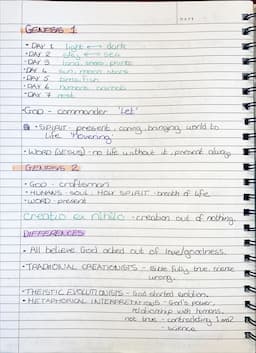 DATE
GENESIS 1
• DAY 1 light ↔ dark
• DAY 2 sky ↔ sea
• DAY 3 land, seas, plants
• DAY 4 sun, moon, stars
• DAY 5 birds, fish
• DAY 6 humans, animals
• DAY 7 rest
• GOD - commander 'Let'
• SPIRIT - present, caring, bringing world to
life 'Hovering'
• WORD (JESUS) - no life without it, present always
GENESIS 2
• GOD - craftsman
• HUMANS - SOUL, HOLY SPIRIT - breath of life
• WORD - present
creatio ex nihilo - creation out of nothing
DIFFERENCES
• All believe God acted out of love/goodness.
• TRADITIONAL CREATIONISTS - Bible fully true, science
wrong.
• THEISTIC EVOLUTIONISTS - God started evolution.
• METAPHORICAL INTERPRETATIONS - God's power,
relationship with humans,
not true - contradicting 1 and 2
- science